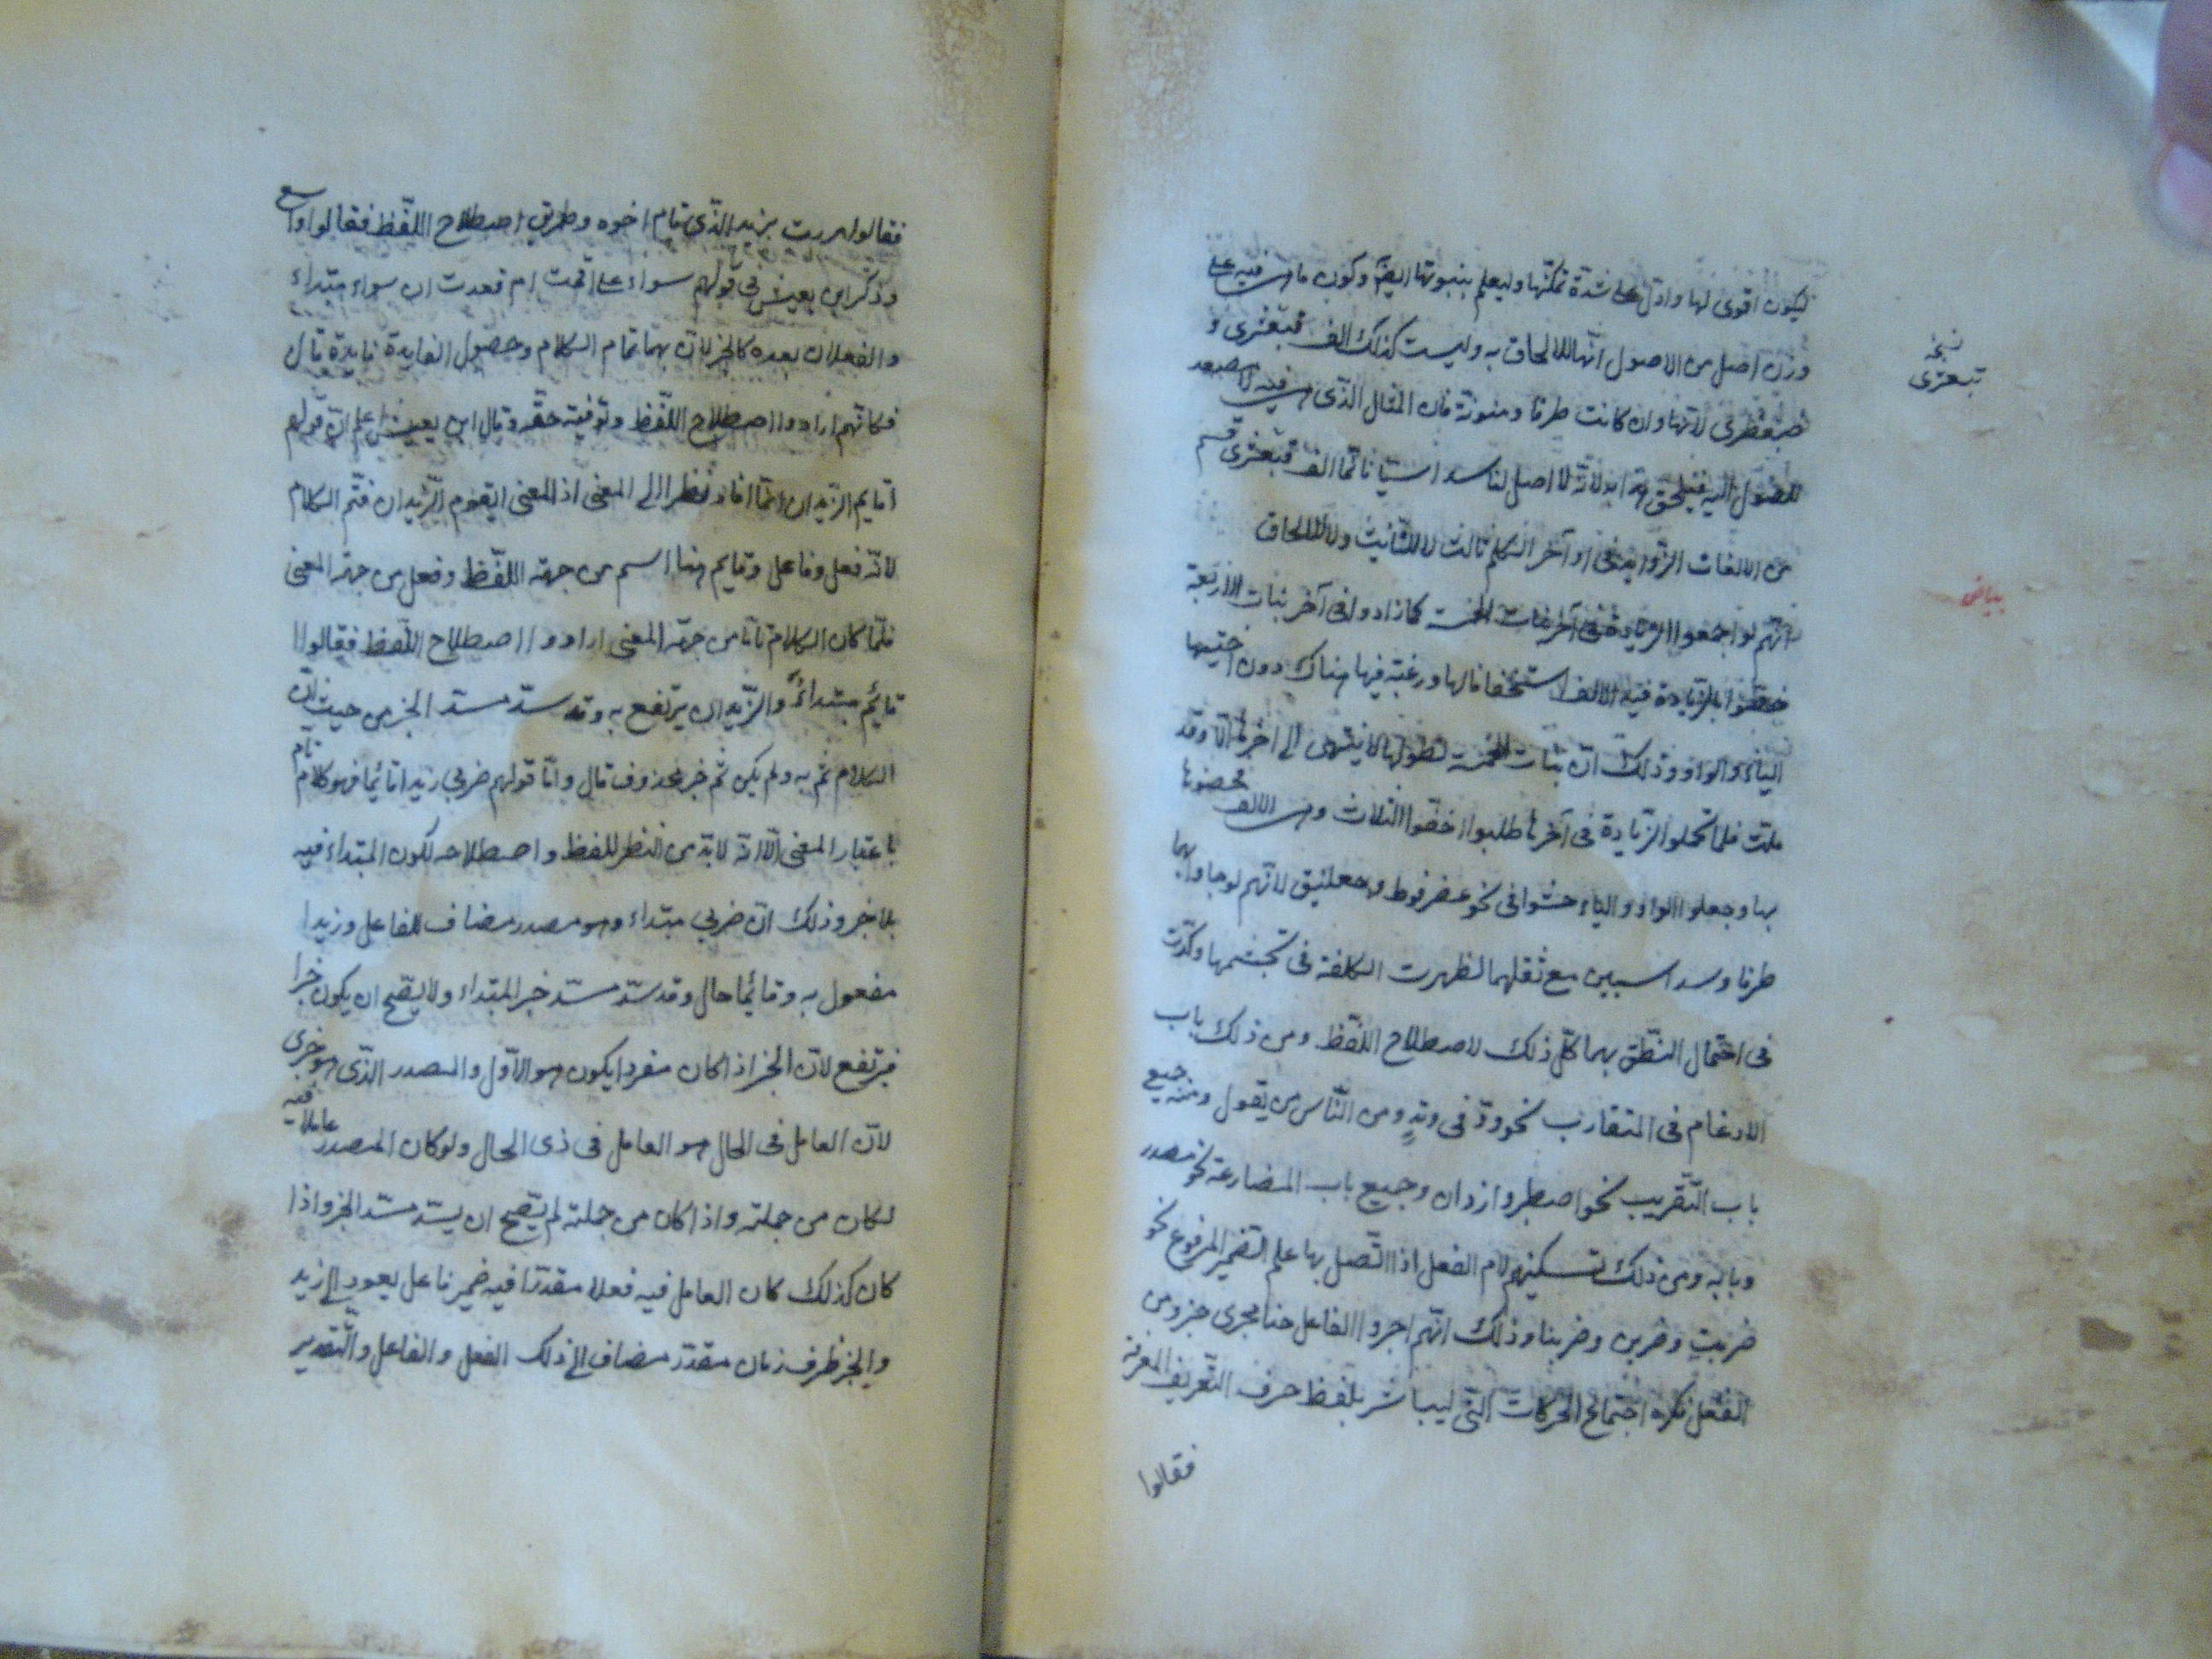 ليكون اقوى لها وادل على شدة تمكنها وليعلم بنبوتها ايضا وكون ما هي فيه على
وزن اصل من الاصول انها للالحاق به وليست كذلك الف قبعثرى و
ضبغطرى لانها وان كانت طرفا ومنونة فان المثال الذى هي فيه لا مصعد
للاصول اليه فيلحق هذا به لانه لا اصل لنا سداسيا فانما الف قبعثرى قسم
من الالفات الزوايد فى اواخر الكلم ثالث لا للتانيث ولا للالحاق
انهم لو اجمعوا الزيادة فى آخر بنات الخمسة كما زادوا فى آخر بنات الاربعة
خصوا بالزيادة فيه الالف استخفافا لها ورغبة فيها هناك دون اختيها
الياء والواو وذلك ان بنات الخمسة لطولها لا ينتهى الى اخرها الا وقد
ملت فلما تحملوا الزيادة فى آخرها طلبوا اخف الثلاث وهى الالف فخصوها
بها وجعلوا الواو والياء حشوا فى نحو عضرفوط وجعفليق لانهم لو جاوا بهما
طرفا وسداسيين مع ثقلهما لظهرت الكلفة فى تجشمها وكدت
فى احتمال النطق بهما كل ذلك لاصطلاح اللفظ ومن ذلك باب
الادغام فى المتقارب نحو ود فى وتد ومن الناس من يقول ومنه جميع
باب التقريب نحو اصطبر وازدان وجميع باب المضارعة نحو مصدر
وبابه ومن ذلك تسكينهم لام الفعل اذا اتصل بها علم الضمير المرفوع نحو
ضربت وضربن وضربنا وذلك انهم اجروا الفاعل هنا مجرى جزء من
الفعل فكره اجتماع الحركات التى ليباشر بلفظ حرف التعريف المعرفة
فقالوا
نسخه
تبعثرى
بياض
فقالوا مررت بزيد الذى قام اخوه وطريق اصطلاح اللفظ فقالوا واسع
وذكر ابن يعيش فى قولهم سواء على اقمت ام قعدت ان سواء مبتداء
والفعلان بعده كالخبر لان بهما تمام الكلام وحصول الفايدة فايدة قال
فكانهم ارادوا اصطلاح اللفظ وتوفيته حقه وقال ابن يعيش اعلم ان قولهم
اقايم الزيدان انما افاد نظرا الى المعنى اذ المعنى ايقوم الزيدان فتم الكلام
لانه فعل وفاعل وقايم هنا اسم من جهة اللفظ وفعل من جهة المعنى
فلما كان الكلام تاما من جهة المعنى ارادوا اصطلاح اللفظ فقالوا ا
قايم مبتداء والزيدان يرتفع به وقد سد مسد الخبر من حيث ان
الكلام تم به ولم يكن ثم خبر محذوف قال واما قولهم ضربي زيدا قائما فهو كلام تام
باعتبار المعنى الا انه لا بد من النظر للفظ واصطلاحه لكون المبتداء فيه
بلا خبر وذلك ان ضربي مبتداء وهو مصدر مضاف للفاعل وزيدا
مفعول به وقائما حال وقد سد مسد خبر المبتداء ولا يصح ان يكون خبرا
فيرتفع لان الخبر اذا كان مفردا يكون هو الاول والمصدر الذى هو ضربى
لان العامل فى الحال هو العامل فى ذى الحال ولو كان المصدر عاملا فيه
لكان من جملته واذا كان من جملته لم يصح ان يسد مسد الخبر واذا
كان كذلك كان العامل فيه فعلا مقدرا فيه ضمير فاعل يعود الى زيد
والخبر ظرف زمان مقدر مضاف الى ذلك الفعل والفاعل والتقدير